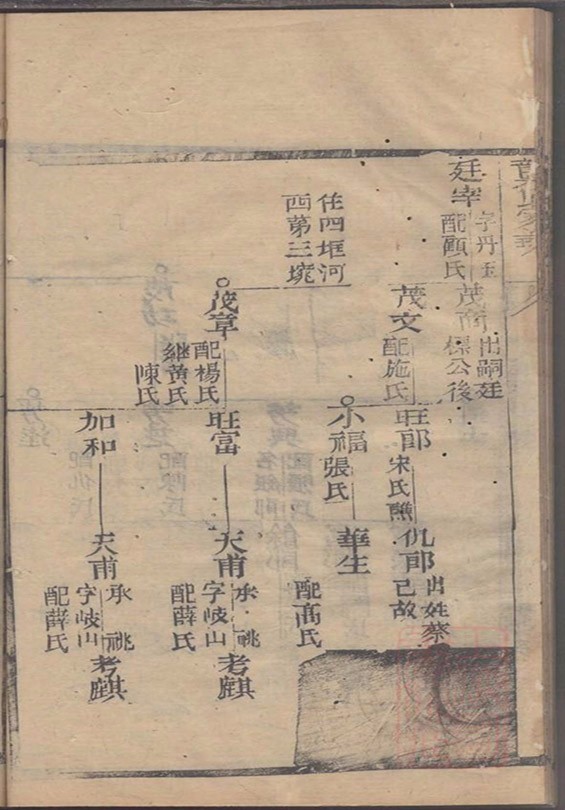 廷宰
字丹玉
配顧氏
茂商
出嗣廷
標公後
茂文
配施氏
旺郎
宋氏醮
仉郎
出姓蔡
已故
住四垣河
西第三堍
小福
張氏
華生
配高氏
茂章
配楊氏
継黃氏
陳氏
旺富
天甫
承祧
字岐山
配薛氏
考麒
加和
天甫
承祧
字岐山
配薛氏
考麒